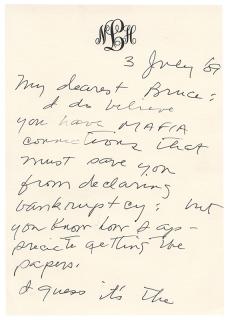 NBH
3 July '69
My dearest Bruce:
I do believe
you have MAFIA
connections that
must save you
from declaring
bankruptcy: but
you know how I ap-
preciate getting the
papers.
I guess it's the